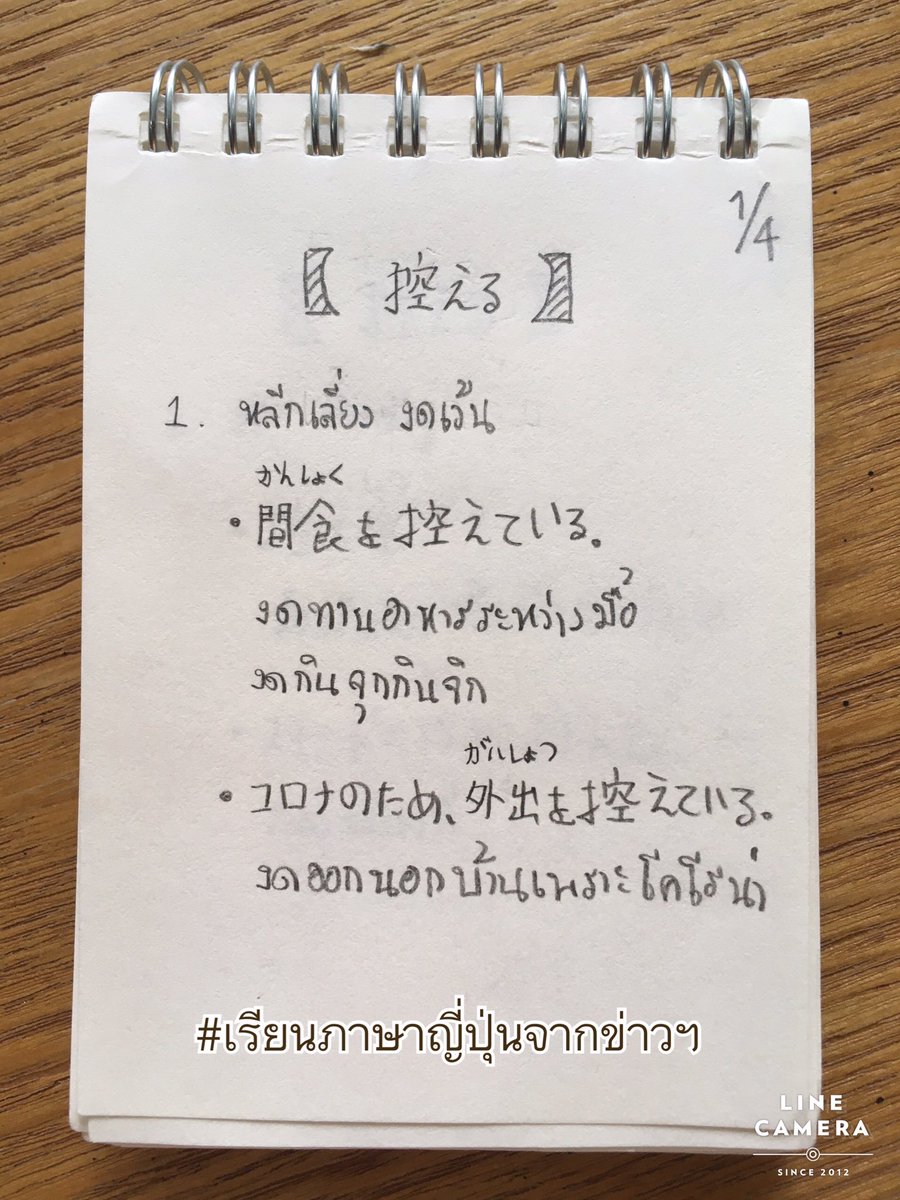 1/4
【 控える 】
1. หลีกเลี่ยง งดเว้น
かんしょく
・間食を控えている。
งดทานอาหารระหว่างมื้อ
งดกินจุกกินจิก
がいしゅつ
・コロナのため、外出を控えている。
งดออกนอกบ้านเพราะโคโรน่า
#เรียนภาษาญี่ปุ่นจากข่าวฯ
LINE
CAMERA
SINCE 2012